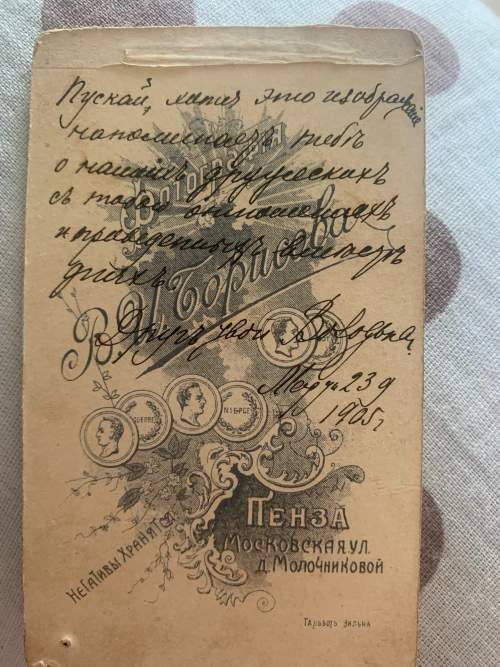 Пускай, хотя это изображеніе
напоминаетъ тебѣ
о нашихъ дружескихъ
съ тобой отношеніяхъ
и проведенныхъ вмѣстѣ
дняхъ
Другъ твой Володька.
Мар. 23 д
1905 г
Фотографія
В. И. Борисовъ
ПЕНЗА
МОСКОВСКАЯ УЛ.
Д. МОЛОЧНИКОВОЙ
НЕГАТИВЫ ХРАНЯТСЯ.
Тальботъ Вильна